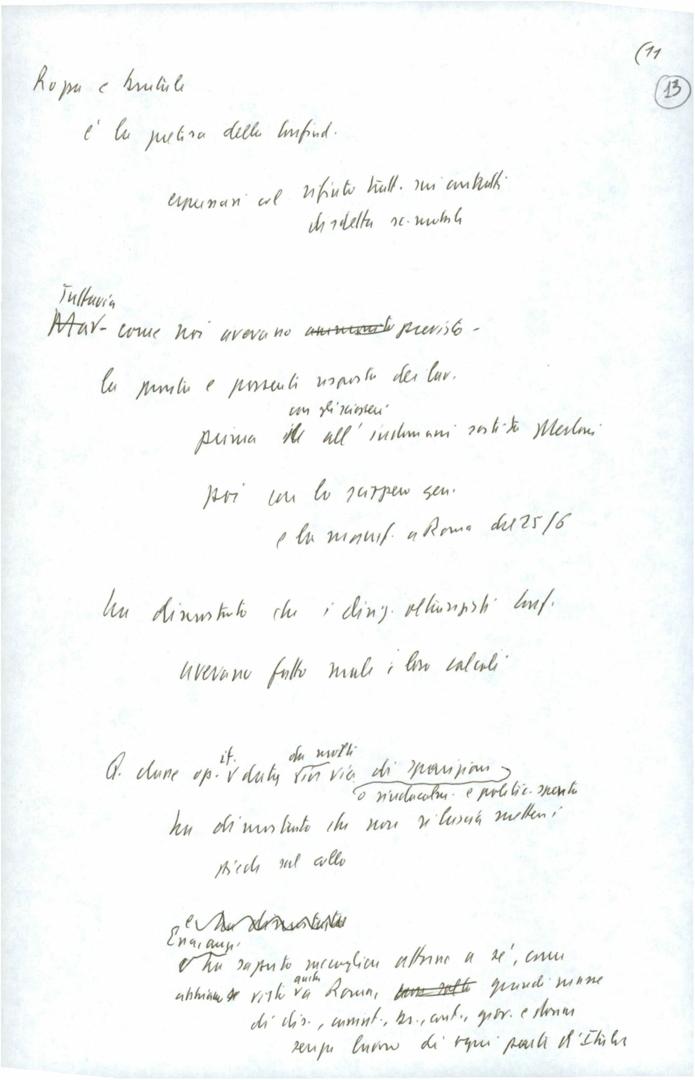 (11
13
Rozza e brutale
è la pretesa della Confind.
espressasi col rifiuto tratt. sui contratti
disdetta sc. mobile
Tuttavia
Ma - come noi avevamo previsto -
la pronta e possente risposta dei lav.
con gli scioperi
prima all'indomani sortita Merloni
poi con lo sciopero gen.
e la manif. a Roma del 25/6
ha dimostrato che i dirig. oltranzisti Conf.
avevano fatto male i loro calcoli
it. da molti
Q. classe op. data via di sparizione
o sindacalm. e politic. spenta
ha dimostrato che non si lascia mettere i
piedi sul collo
e ha dimostrato
Enzi anzi
e ha saputo raccogliere attorno a sé, come
anche
abbiamo visto a Roma, grandi masse
di dis., ammt., giov. e donne
senza lavoro di ogni parte d'Italia